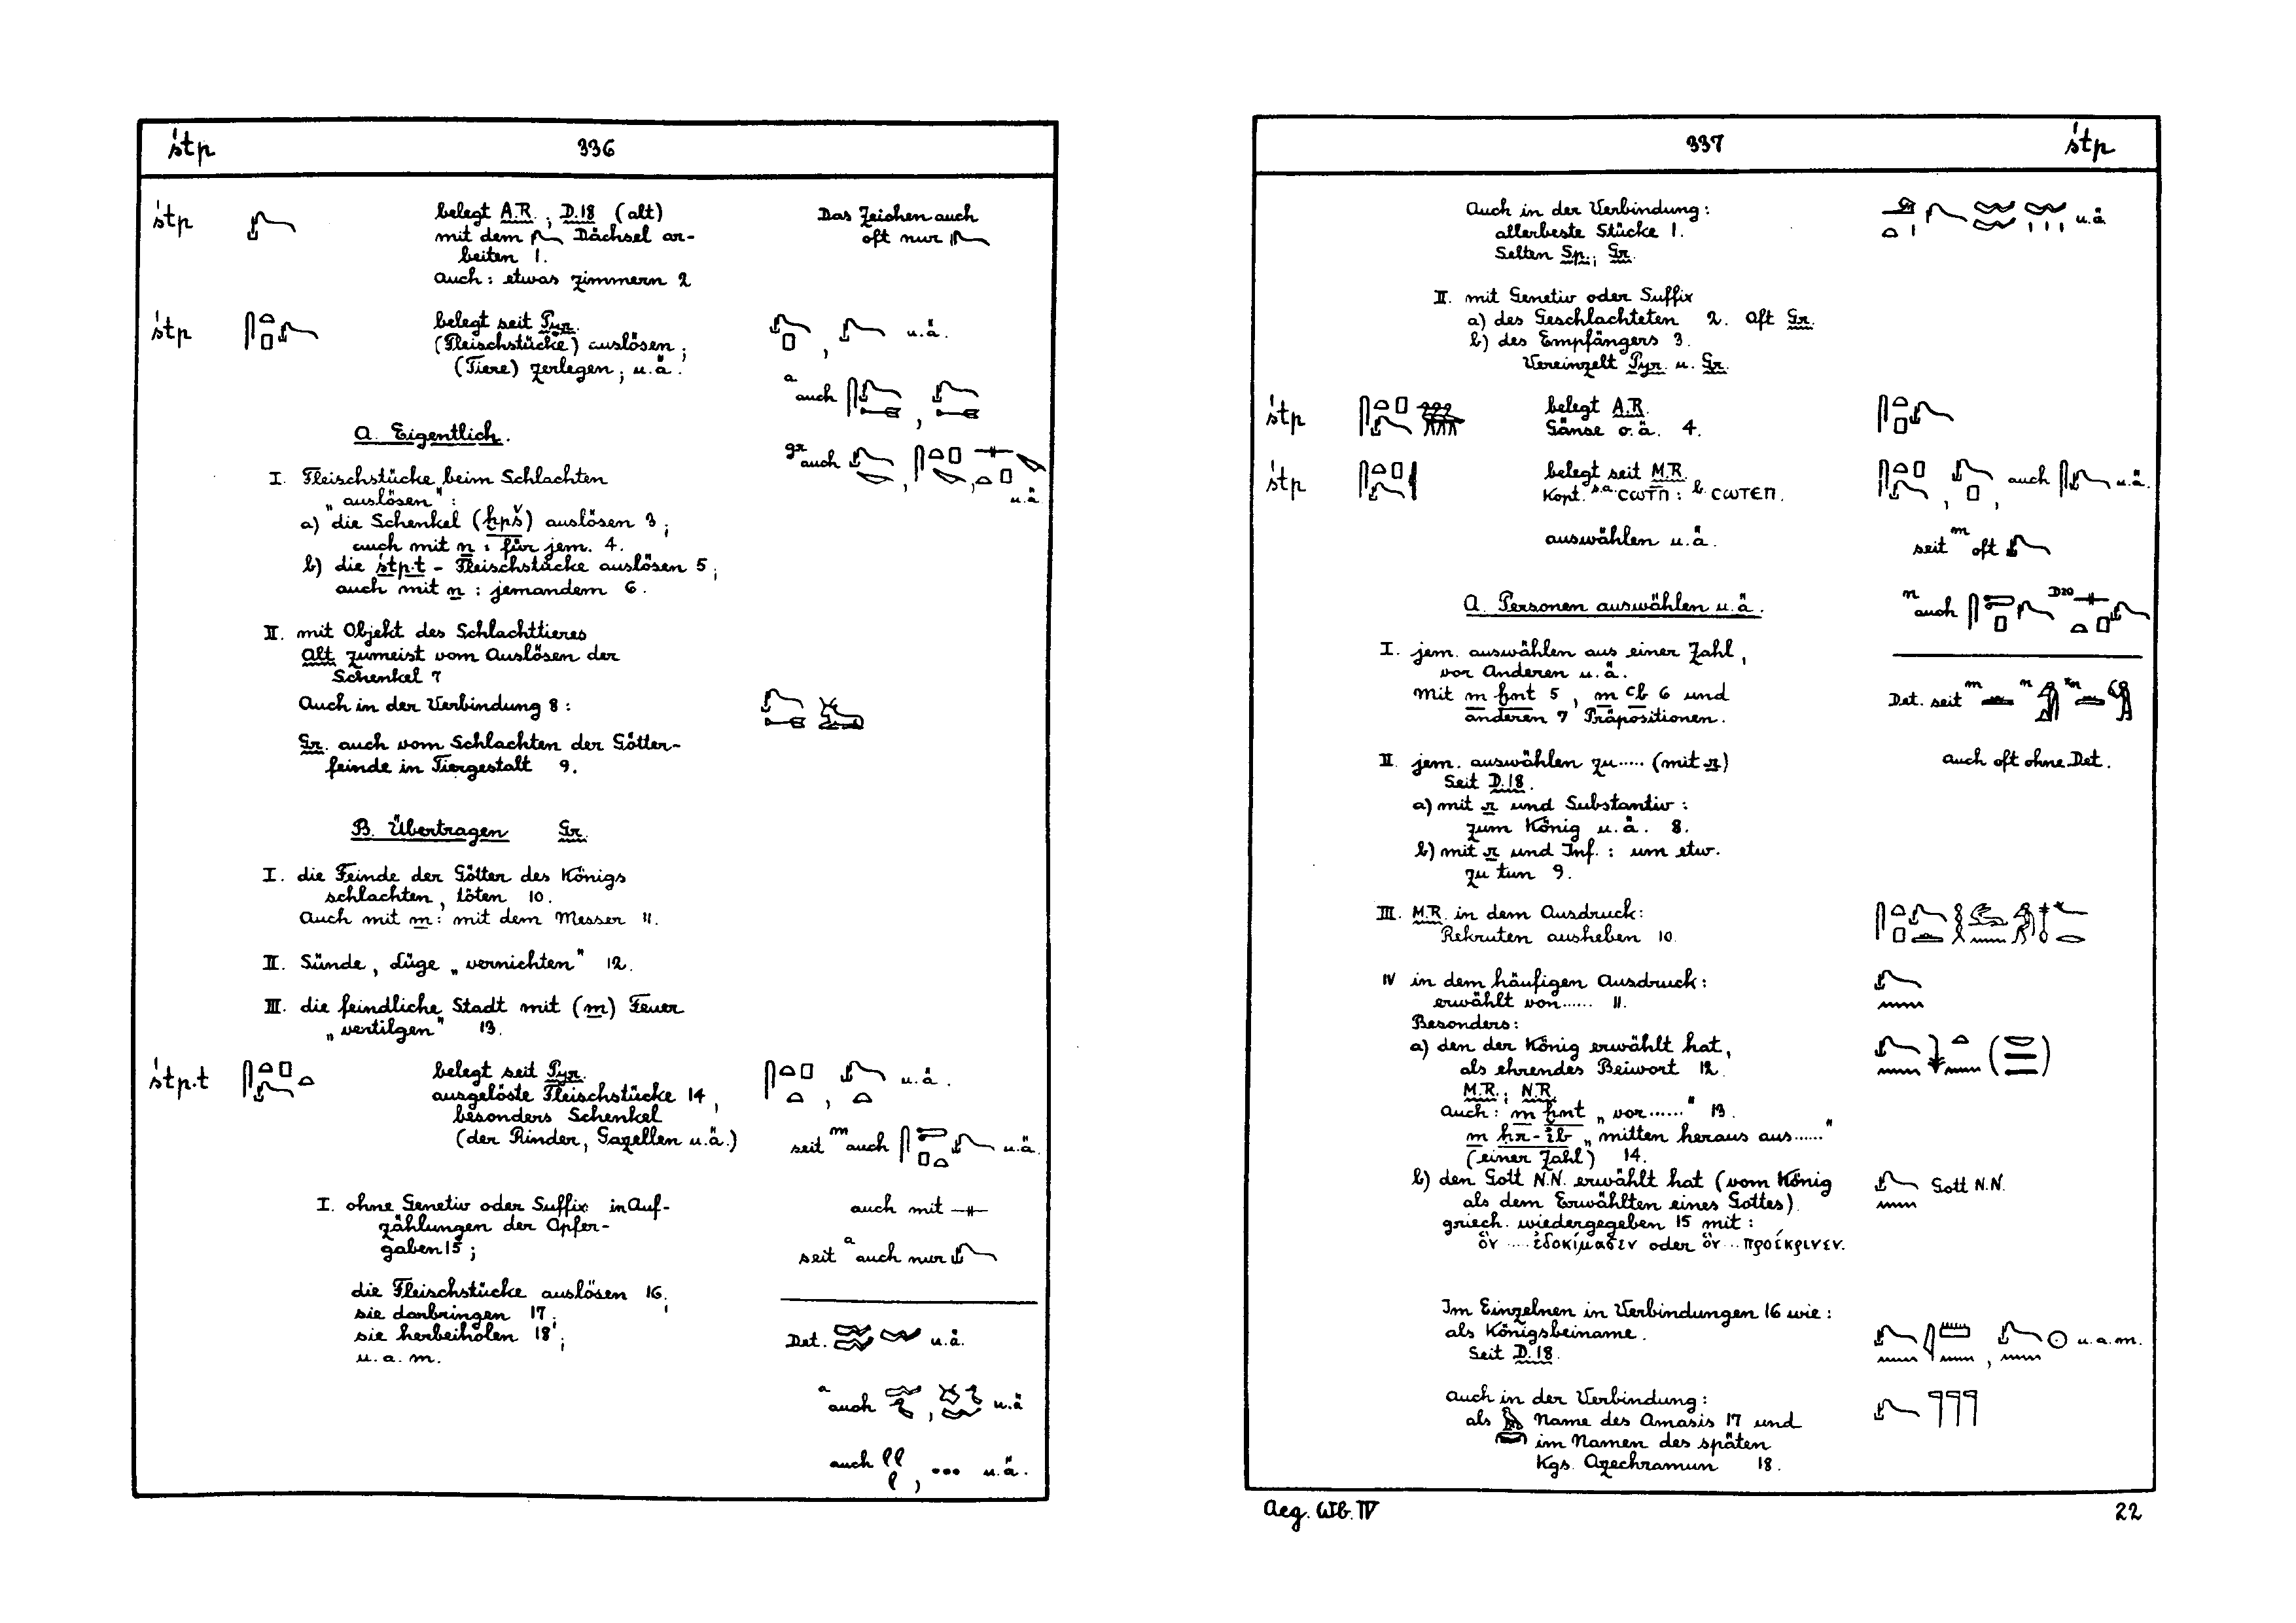 śtp 336
śtp belegt A.R.; D.18 (alt) Das Zeichen auch
mit dem Dächsel ar- oft nur
beiten 1.
Auch: etwas zimmern 2
śtp belegt seit Pyr.
(Fleischstücke) auslösen; , u.ä.
(Tiere) zerlegen; u.ä.
a auch ,
A. Eigentlich.
gr auch , , u.ä.
I. Fleischstücke beim Schlachten
„auslösen“:
a) die Schenkel (ḫpš) auslösen 3;
auch mit n: für jem. 4.
b) die śtp.t - Fleischstücke auslösen 5;
auch mit n: jemandem 6.
II. mit Objekt des Schlachttieres
Alt zumeist vom Auslösen der
Schenkel 7
Auch in der Verbindung 8:
Gr. auch vom Schlachten der Götter-
feinde in Tiergestalt 9.
B. Übertragen Gr.
I. die Feinde der Götter des Königs
schlachten, töten 10.
Auch mit m: mit dem Messer 11.
II. Sünde, Lüge „vernichten“ 12.
III. die feindliche Stadt mit (m) Feuer
„vertilgen“ 13.
śtp.t belegt seit Pyr. , u.ä.
ausgelöste Fleischstücke 14,
besonders Schenkel
(der Rinder, Gazellen u.ä.) seit m auch u.ä.
I. ohne Genetiv oder Suffix in Auf- auch mit
zählungen der Opfer-
gaben 15; seit a auch nur
die Fleischstücke auslösen 16,
sie darbringen 17;
sie herbeiholen 18; Det. u.ä.
u.a.m.
a auch , u.ä
auch , ... u.ä.
337 śtp
Auch in der Verbindung: u.ä
allerbeste Stücke 1.
Selten Sp.; Gr.
II. mit Genetiv oder Suffix
a) des Geschlachteten 2. Oft Gr.
b) des Empfängers 3.
Vereinzelt Pyr. u. Gr.
śtp belegt A.R.
Gänse o.ä. 4.
śtp belegt seit M.R. , , auch u.ä.
Kopt. s.a. ⲥⲱⲧⲡ: b. ⲥⲱⲧⲉⲡ.
auswählen u.ä. seit m oft
n auch D20
A. Personen auswählen u.ä.
I. jem. auswählen aus einer Zahl,
vor Anderen u.ä.
Mit m ḫnt 5, m ꜥb 6 und Det. seit m n
anderen 7 Präpositionen.
II. jem. auswählen zu..... (mit r) auch oft ohne Det.
Seit D.18.
a) mit r und Substantiv:
zum König u.ä. 8.
b) mit r und Inf.: um etw.
zu tun 9.
III. M.R. in dem Ausdruck:
Rekruten ausheben 10.
IV in dem häufigen Ausdruck:
erwählt von...... 11.
Besonders:
a) den der König erwählt hat,
als ehrendes Beiwort 12.
M.R.; N.R.
Auch: m ḫnt „vor......“ 13.
m ḥr-ib „mitten heraus aus.....“
(einer Zahl) 14.
b) den Gott N.N. erwählt hat (vom König Gott N.N.
als dem Erwählten eines Gottes)
griech. wiedergegeben 15 mit:
ὃν .... ἐδοκίμασεν oder ὃν .. προέκρινεν.
Im Einzelnen in Verbindungen 16 wie:
als Königsbeiname. , u.a.m.
Seit D.18.
Auch in der Verbindung:
als Name des Amasis 17 und
im Namen des späten
Kgs. Azechramun 18.
Aeg. Wb. IV 22